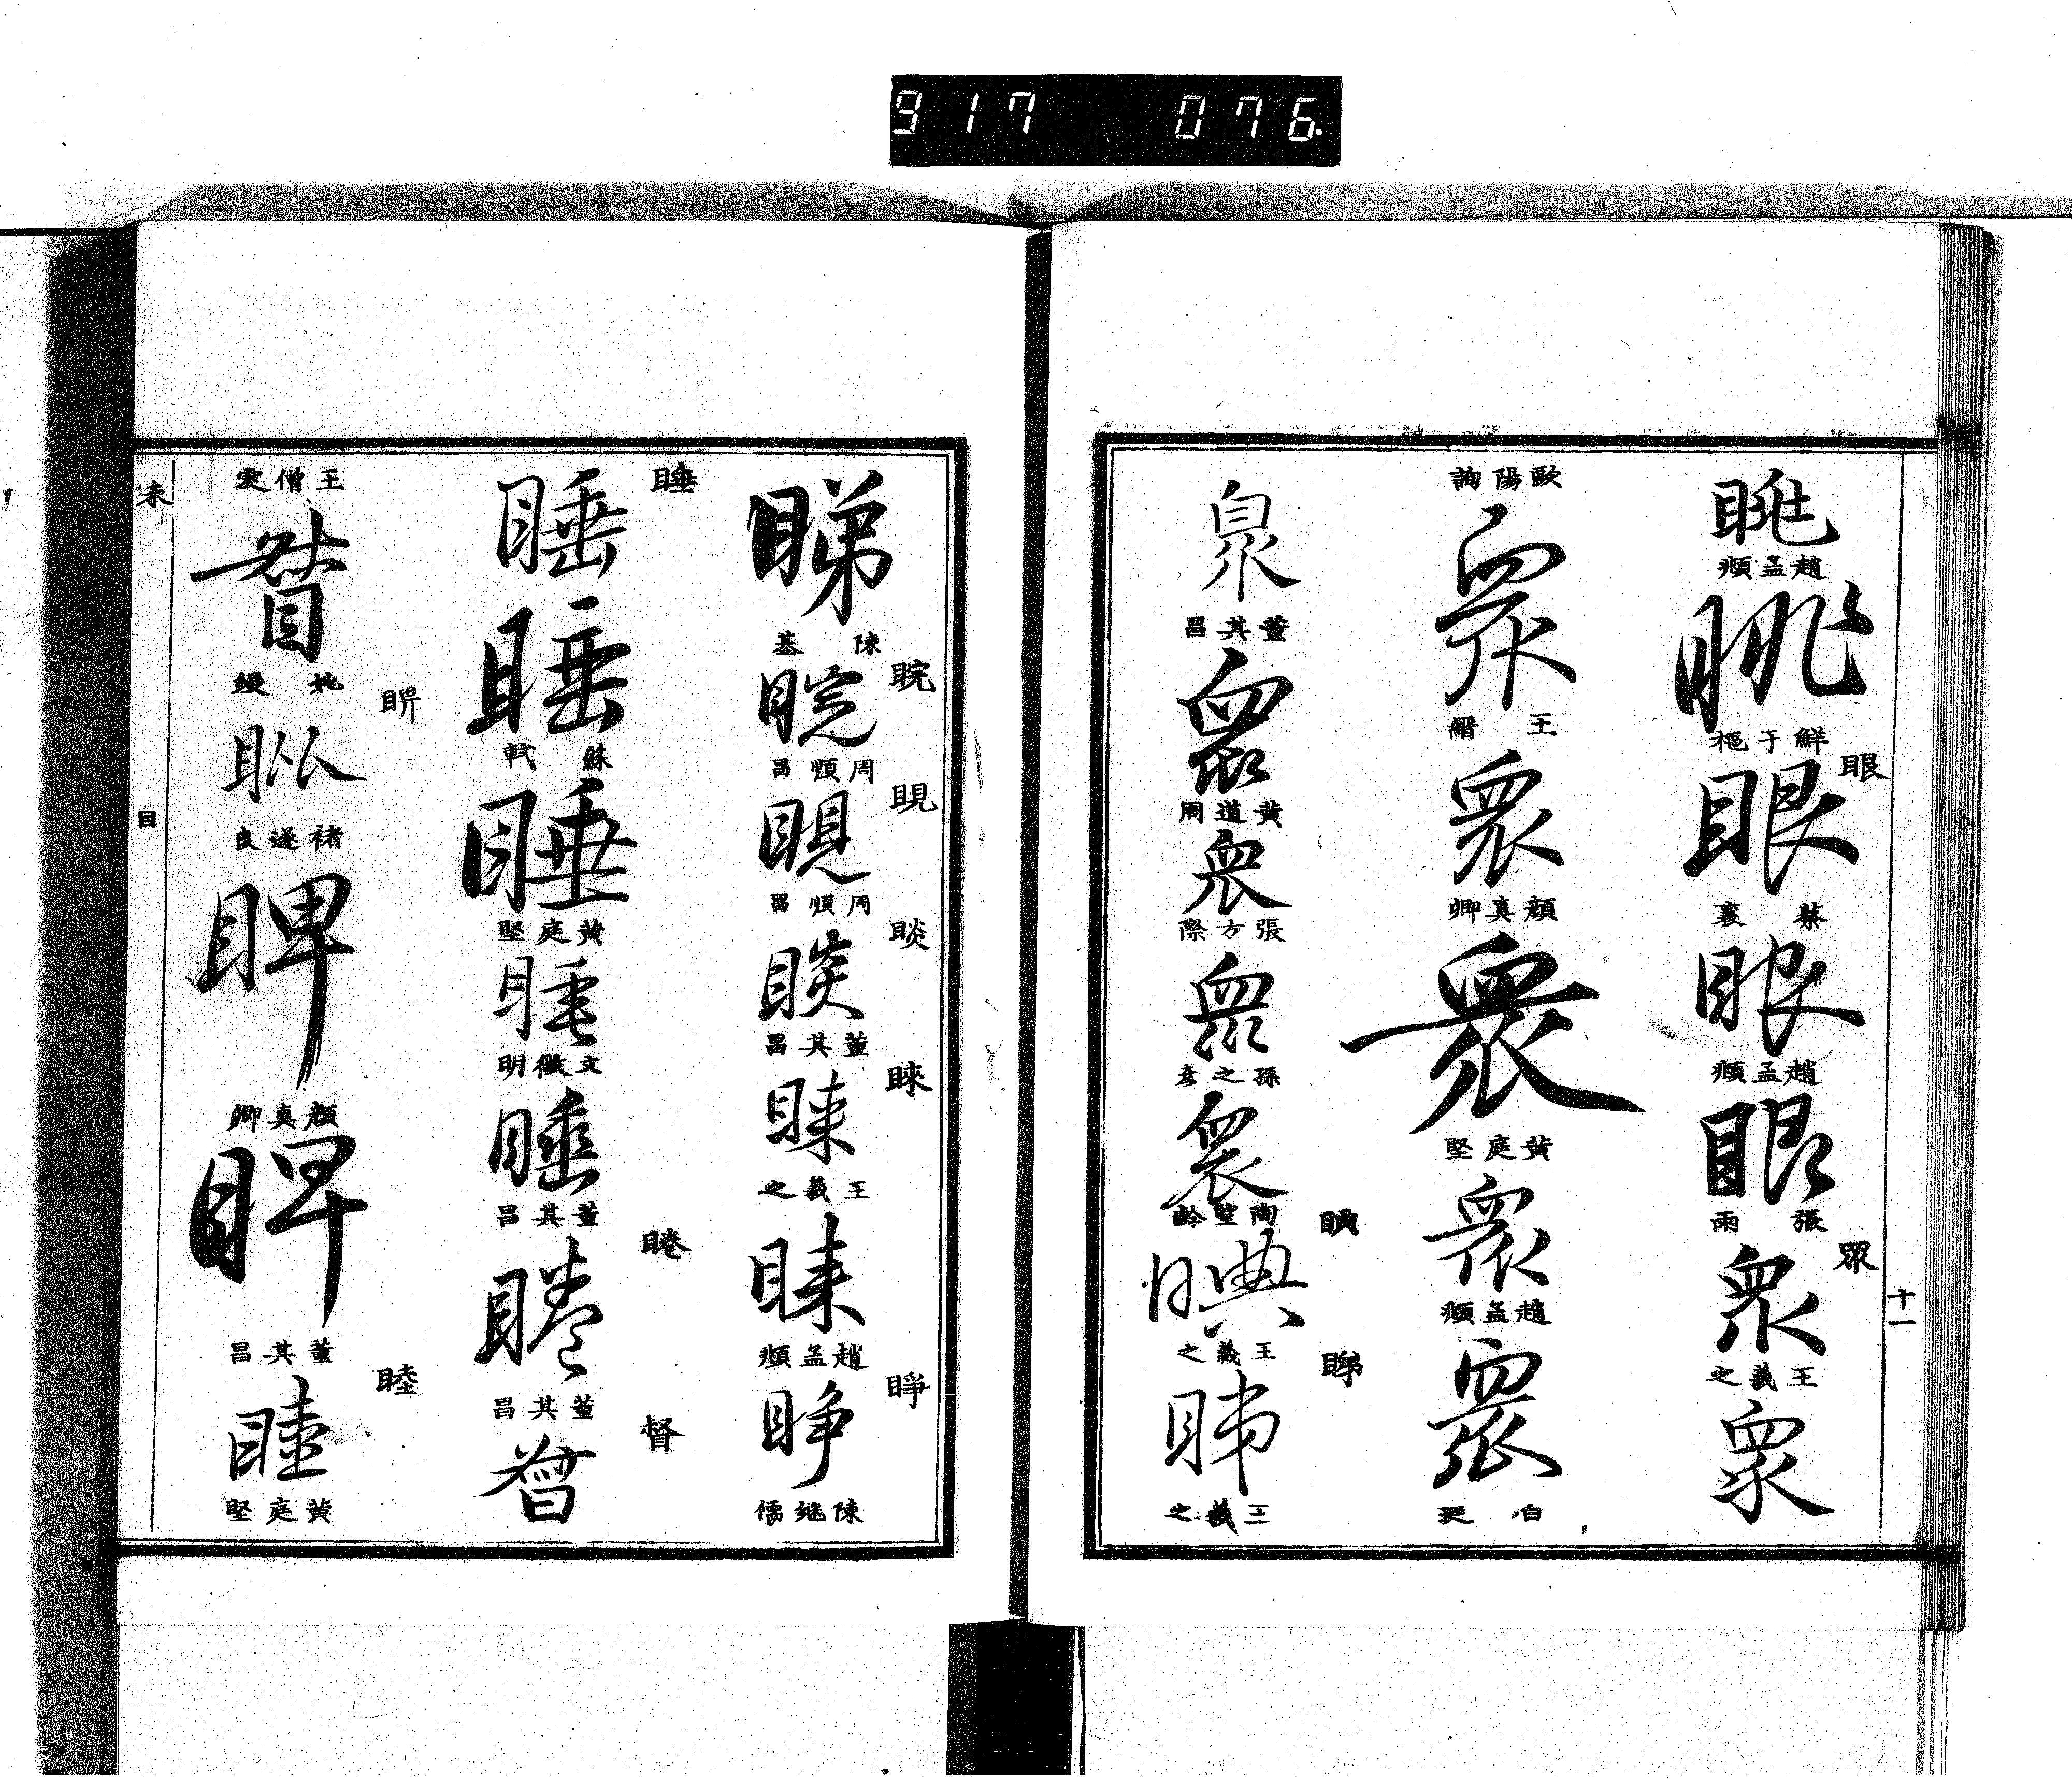 917 076
十一
眺
趙孟頫
眺
鮮于樞
眼
眼
蔡襄
眼
趙孟頫
眼
張雨
眾
眾
王羲之
眾
歐陽詢
眾
王縉
眾
顏真卿
眾
黃庭堅
眾
趙孟頫
眾
白珽
眾
董其昌
眾
黃道周
眾
張方際
眾
孫之彥
眾
陶望齡
睓
睓
王羲之
睇
睇
王羲之
睇
陳基
睆
睆
周順昌
睍
睍
周順昌
睒
睒
董其昌
睞
睞
王羲之
睞
趙孟頫
睜
睜
陳繼儒
睡
睡
睡
蘇軾
睡
黃庭堅
睡
文徵明
睡
董其昌
睠
睠
董其昌
督
督
王僧虔
督
睥
褚遂良
睥
顏真卿
睥
董其昌
睦
睦
黃庭堅
未
目